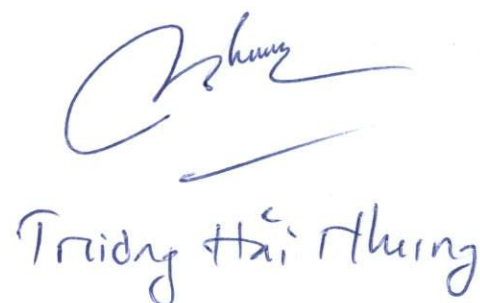 Nhung
Trương Hải Nhung